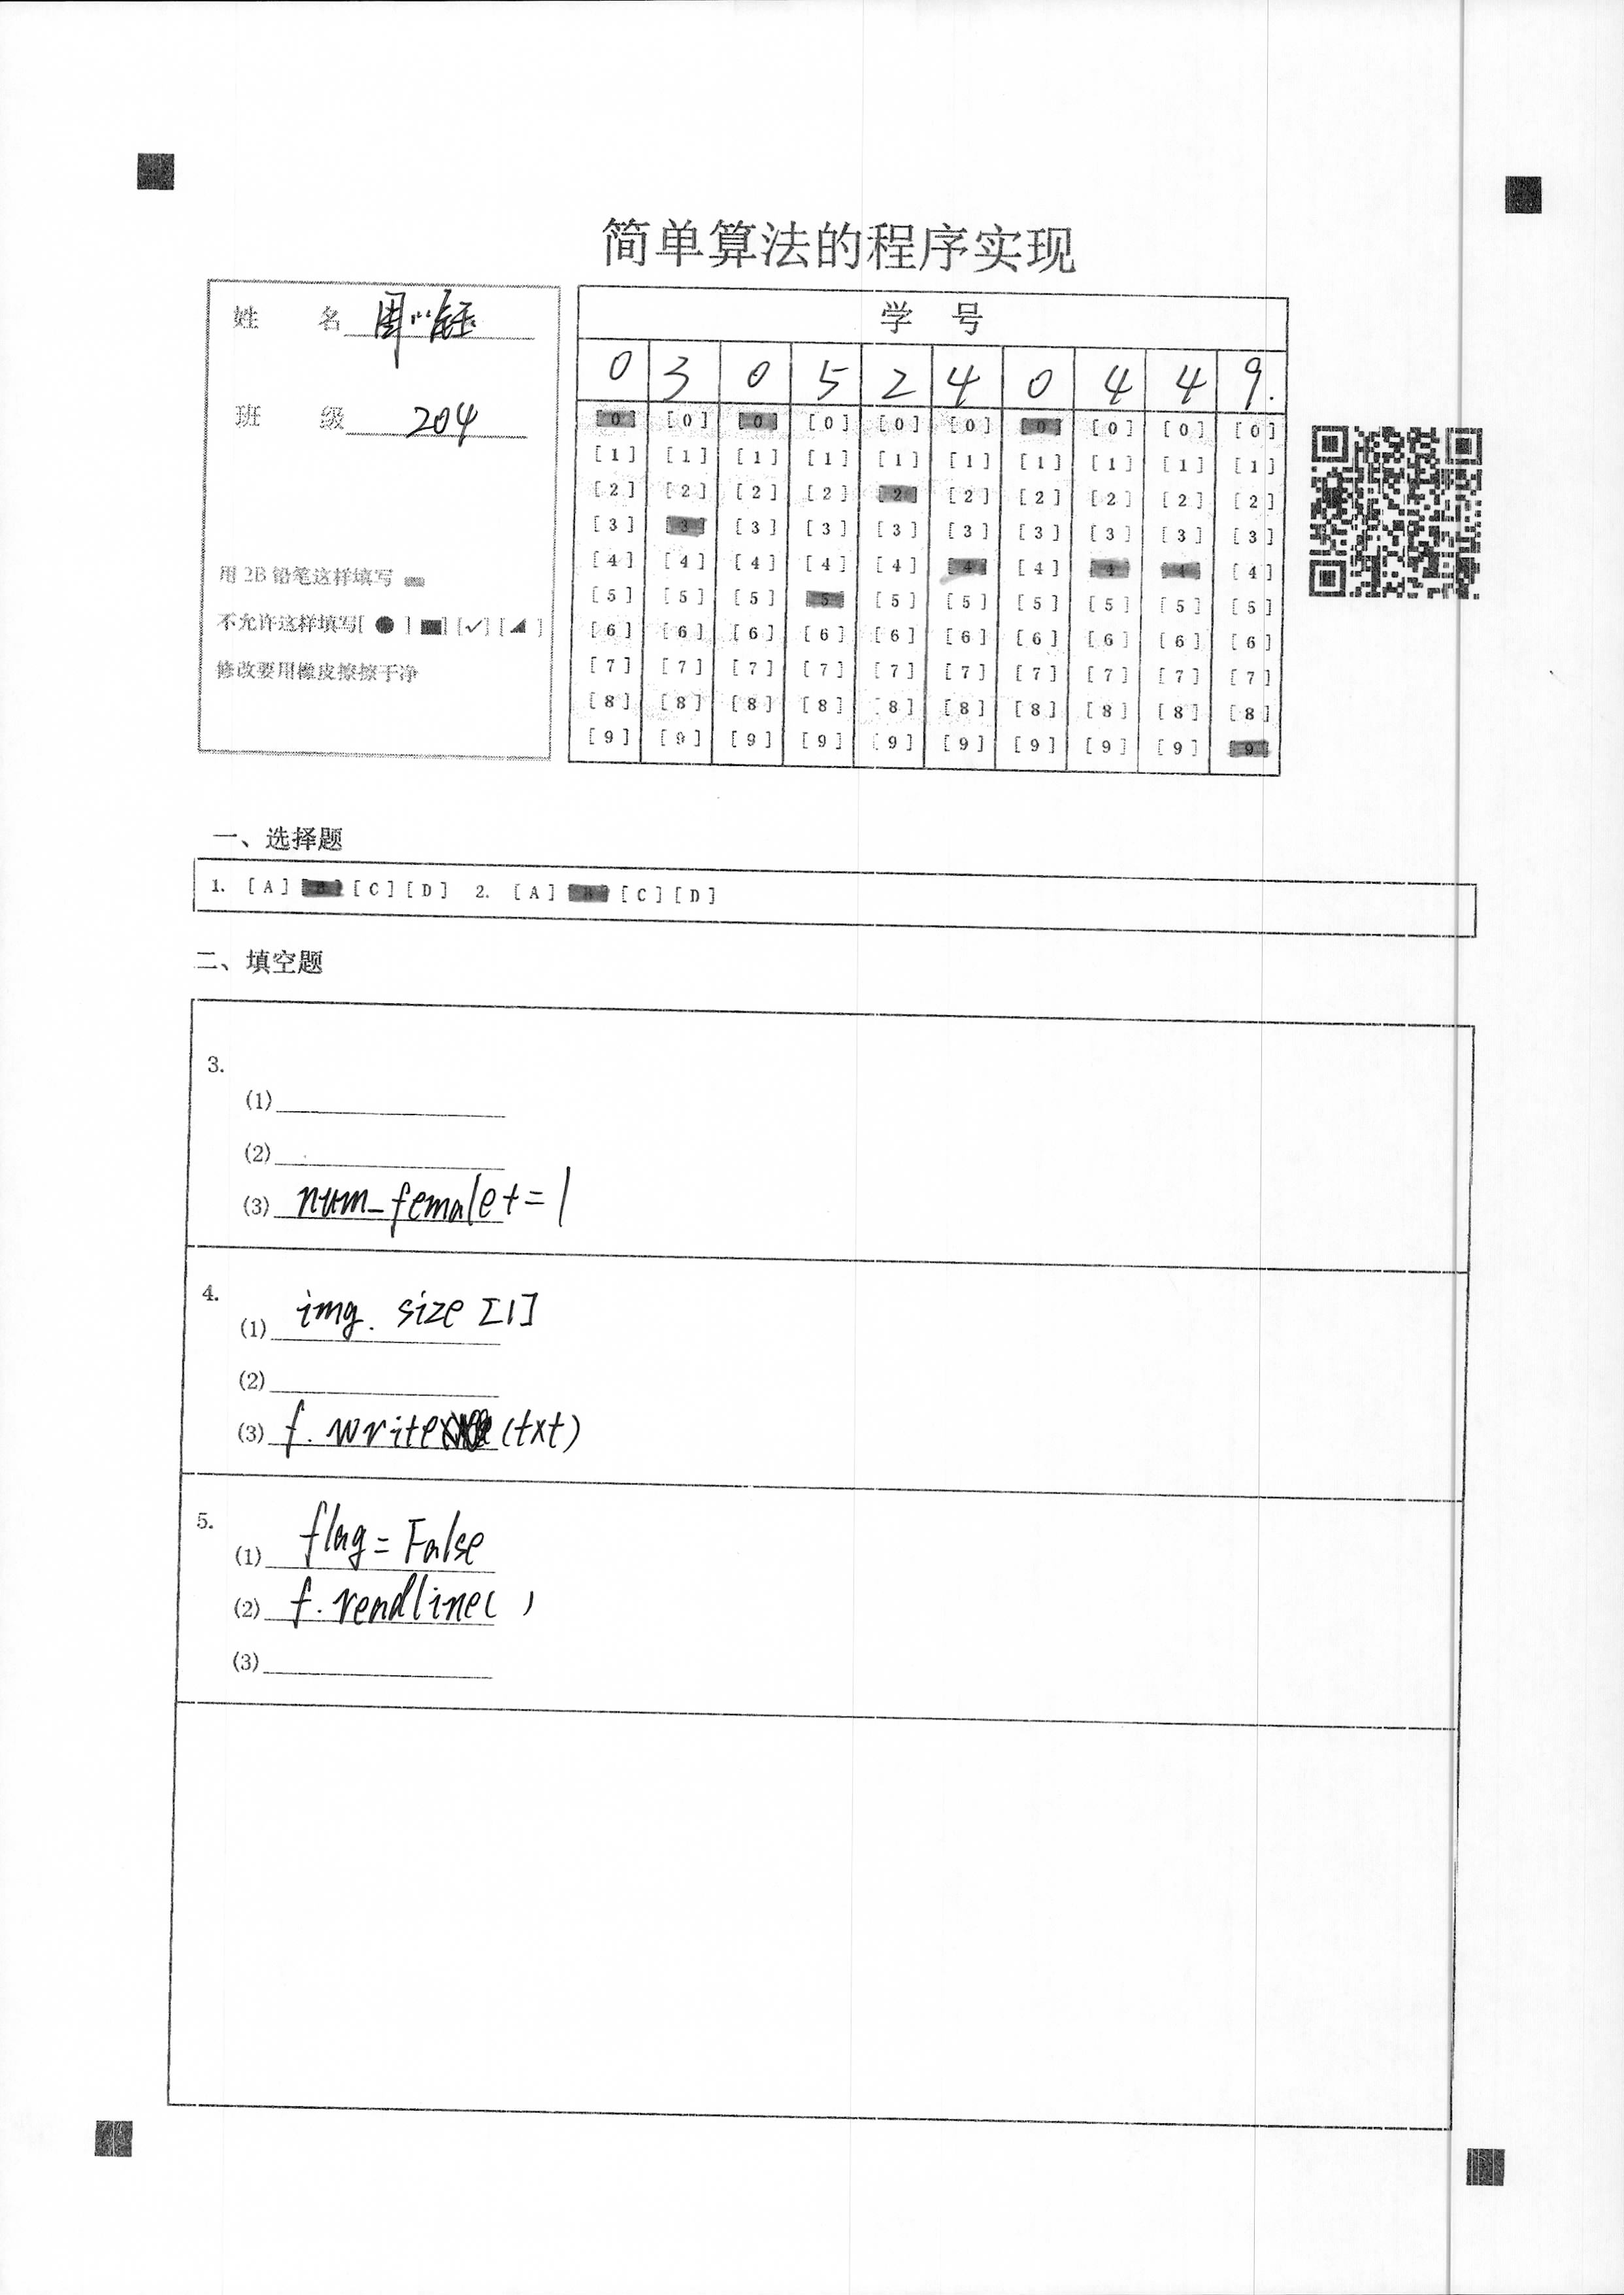 简单算法的程序实现
姓 名 周
班 级 204
用 2B 铅笔这样填写
不允许这样填写[ ● ] [■] [✓] [◢ ]
修改要用橡皮擦擦干净
学 号
0 3 0 5 2 4 0 4 4 9.
[0] [0] [0] [0] [0] [0] [0] [0] [0] [0]
[1] [1] [1] [1] [1] [1] [1] [1] [1] [1]
[2] [2] [2] [2] [2] [2] [2] [2] [2] [2]
[3] [3] [3] [3] [3] [3] [3] [3] [3] [3]
[4] [4] [4] [4] [4] [4] [4] [4] [4] [4]
[5] [5] [5] [5] [5] [5] [5] [5] [5] [5]
[6] [6] [6] [6] [6] [6] [6] [6] [6] [6]
[7] [7] [7] [7] [7] [7] [7] [7] [7] [7]
[8] [8] [8] [8] [8] [8] [8] [8] [8] [8]
[9] [9] [9] [9] [9] [9] [9] [9] [9] [9]
一、选择题
1. [A] [B] [C] [D] 2. [A] [B] [C] [D]
二、填空题
3.
(1)
(2)
(3) num_female+=1
4.
(1) img. size [1]
(2)
(3) f. write (txt)
5.
(1) flag = False
(2) f. readline( )
(3)